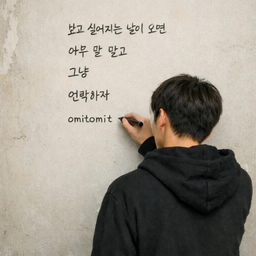 보고 싶어지는 날이 오면
아무 말 말고
그냥
연락하자
omitomit